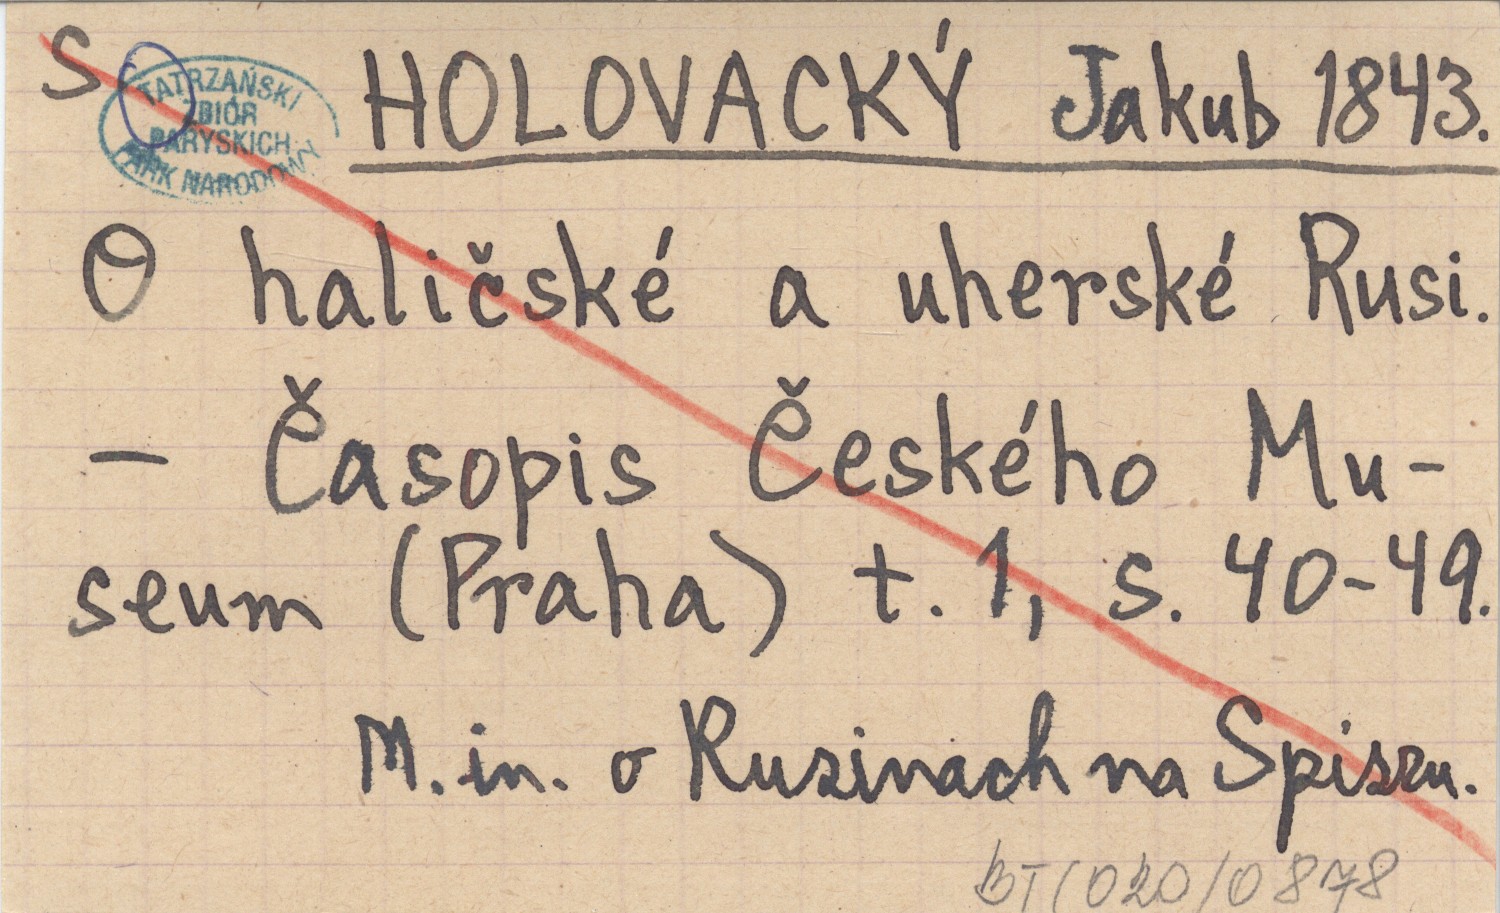 S
TATRZAŃSKI
ZBIÓR
PARYSKICH
PARK NARODOWY
HOLOVACKÝ Jakub 1843.
O haličské a uherské Rusi.
— Časopis Českého Mu-
seum (Praha) t. 1, s. 40-49.
M. in. o Rusinach na Spiszu.
BT(020/0878